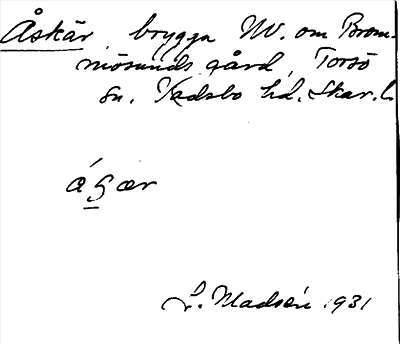 Åskär, brygga NV. om Brom-
mösunds gård, Torsö
sn. Vadsbo hd. Skar. l.
á ʂ ær
L. Madsén 1931